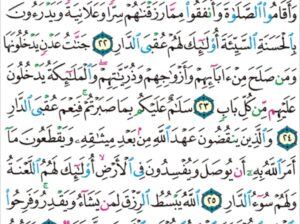 وَأَقَامُوا۟ ٱلصَّلَوٰةَ وَأَنفَقُوا۟ مِمَّا رَزَقْنَـٰهُمْ سِرًّا وَعَلَانِيَةً وَيَدْرَءُونَ
بِٱلْحَسَنَةِ ٱلسَّيِّئَةَ أُو۟لَـٰٓئِكَ لَهُمْ عُقْبَى ٱلدَّارِ ٢٢ جَنَّـٰتُ عَدْنٍ يَدْخُلُونَهَا
وَمَن صَلَحَ مِنْ ءَابَآئِهِمْ وَأَزْوَٰجِهِمْ وَذُرِّيَّـٰتِهِمْ وَٱلْمَلَـٰٓئِكَةُ يَدْخُلُونَ
عَلَيْهِم مِّن كُلِّ بَابٍ ٢٣ سَلَـٰمٌ عَلَيْكُم بِمَا صَبَرْتُمْ فَنِعْمَ عُقْبَى ٱلدَّارِ
٢٤ وَٱلَّذِينَ يَنقُضُونَ عَهْدَ ٱللَّهِ مِنۢ بَعْدِ مِيثَـٰقِهِۦ وَيَقْطَعُونَ مَآ
أَمَرَ ٱللَّهُ بِهِۦٓ أَن يُوصَلَ وَيُفْسِدُونَ فِى ٱلْأَرْضِ أُو۟لَـٰٓئِكَ لَهُمُ ٱللَّعْنَةُ
وَلَهُمْ سُوٓءُ ٱلدَّارِ ٢٥ ٱللَّهُ يَبْسُطُ ٱلرِّزْقَ لِمَن يَشَآءُ وَيَقْدِرُ وَفَرِحُوا۟